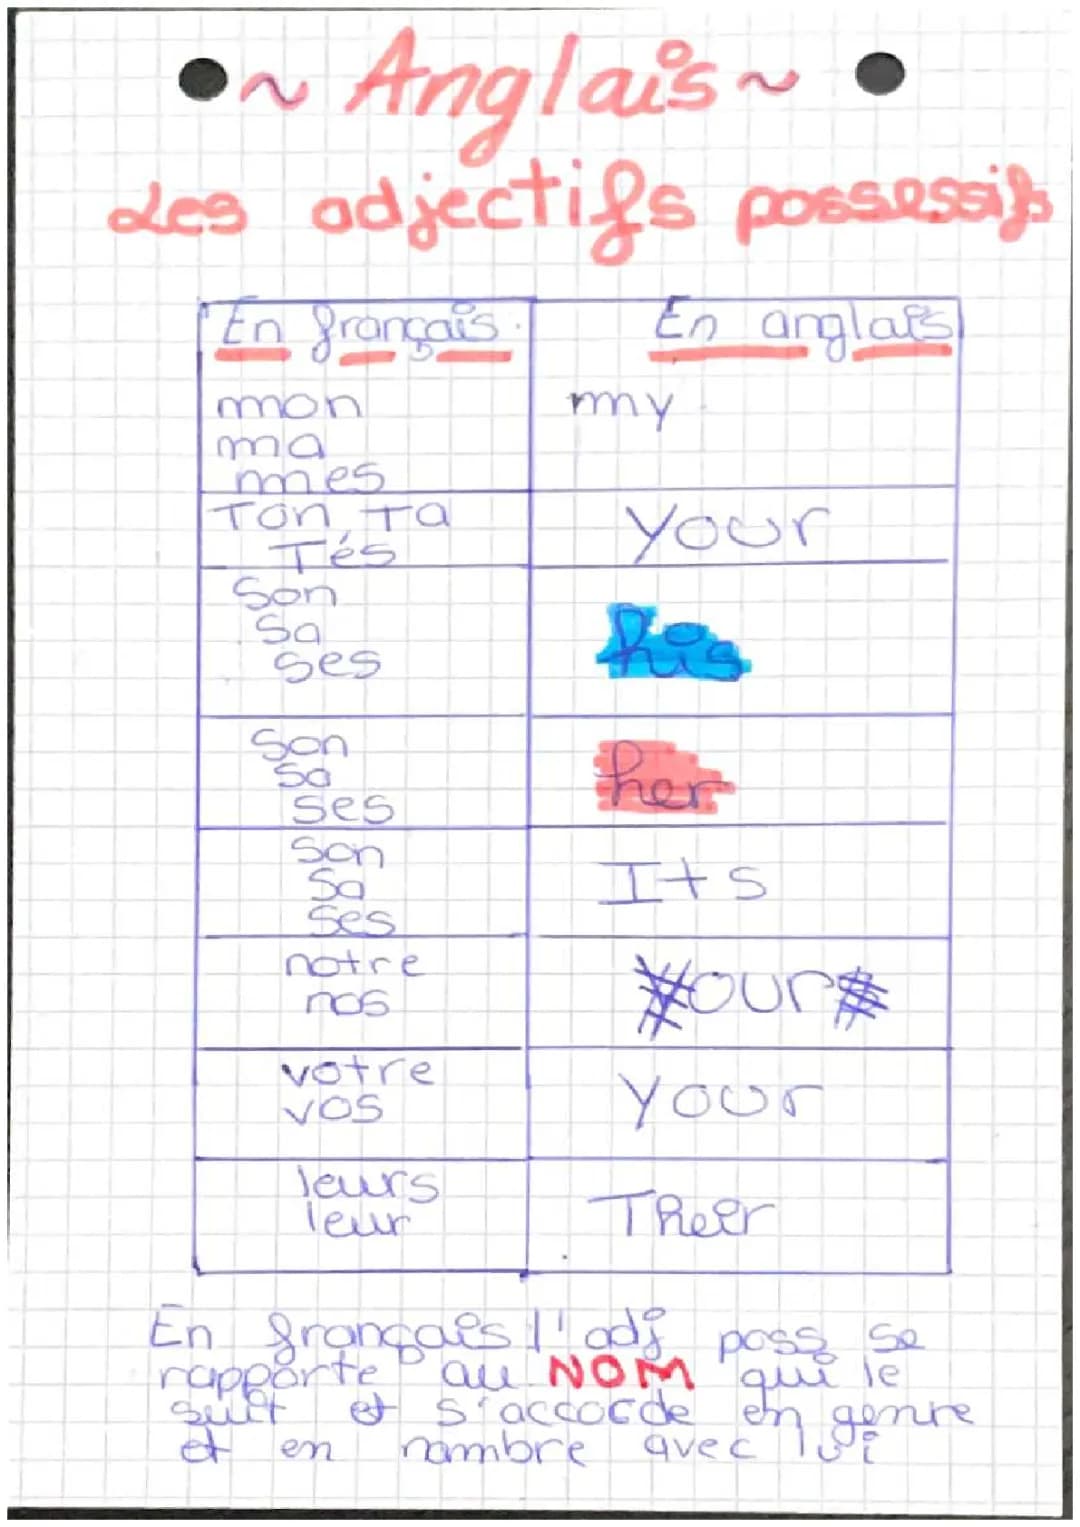 ~ Anglais ~
Les adjectifs possessifs
En français En anglais
mon my
ma
mes
Ton, Ta your
Tes
Son his
Sa
ses
Son her
Sa
ses
Son Its
Sa
Ses
notre our
nos
votre your
vos
leurs Their
leur
En français l'adj poss se
rapporte au NOM qui le
suit et s'accorde en genre
et en nombre avec lui